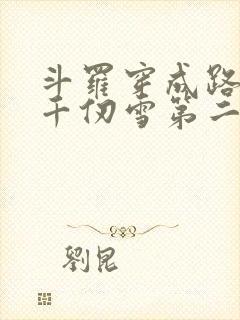 斗羅穿成路
千仞雪第二
劉昆